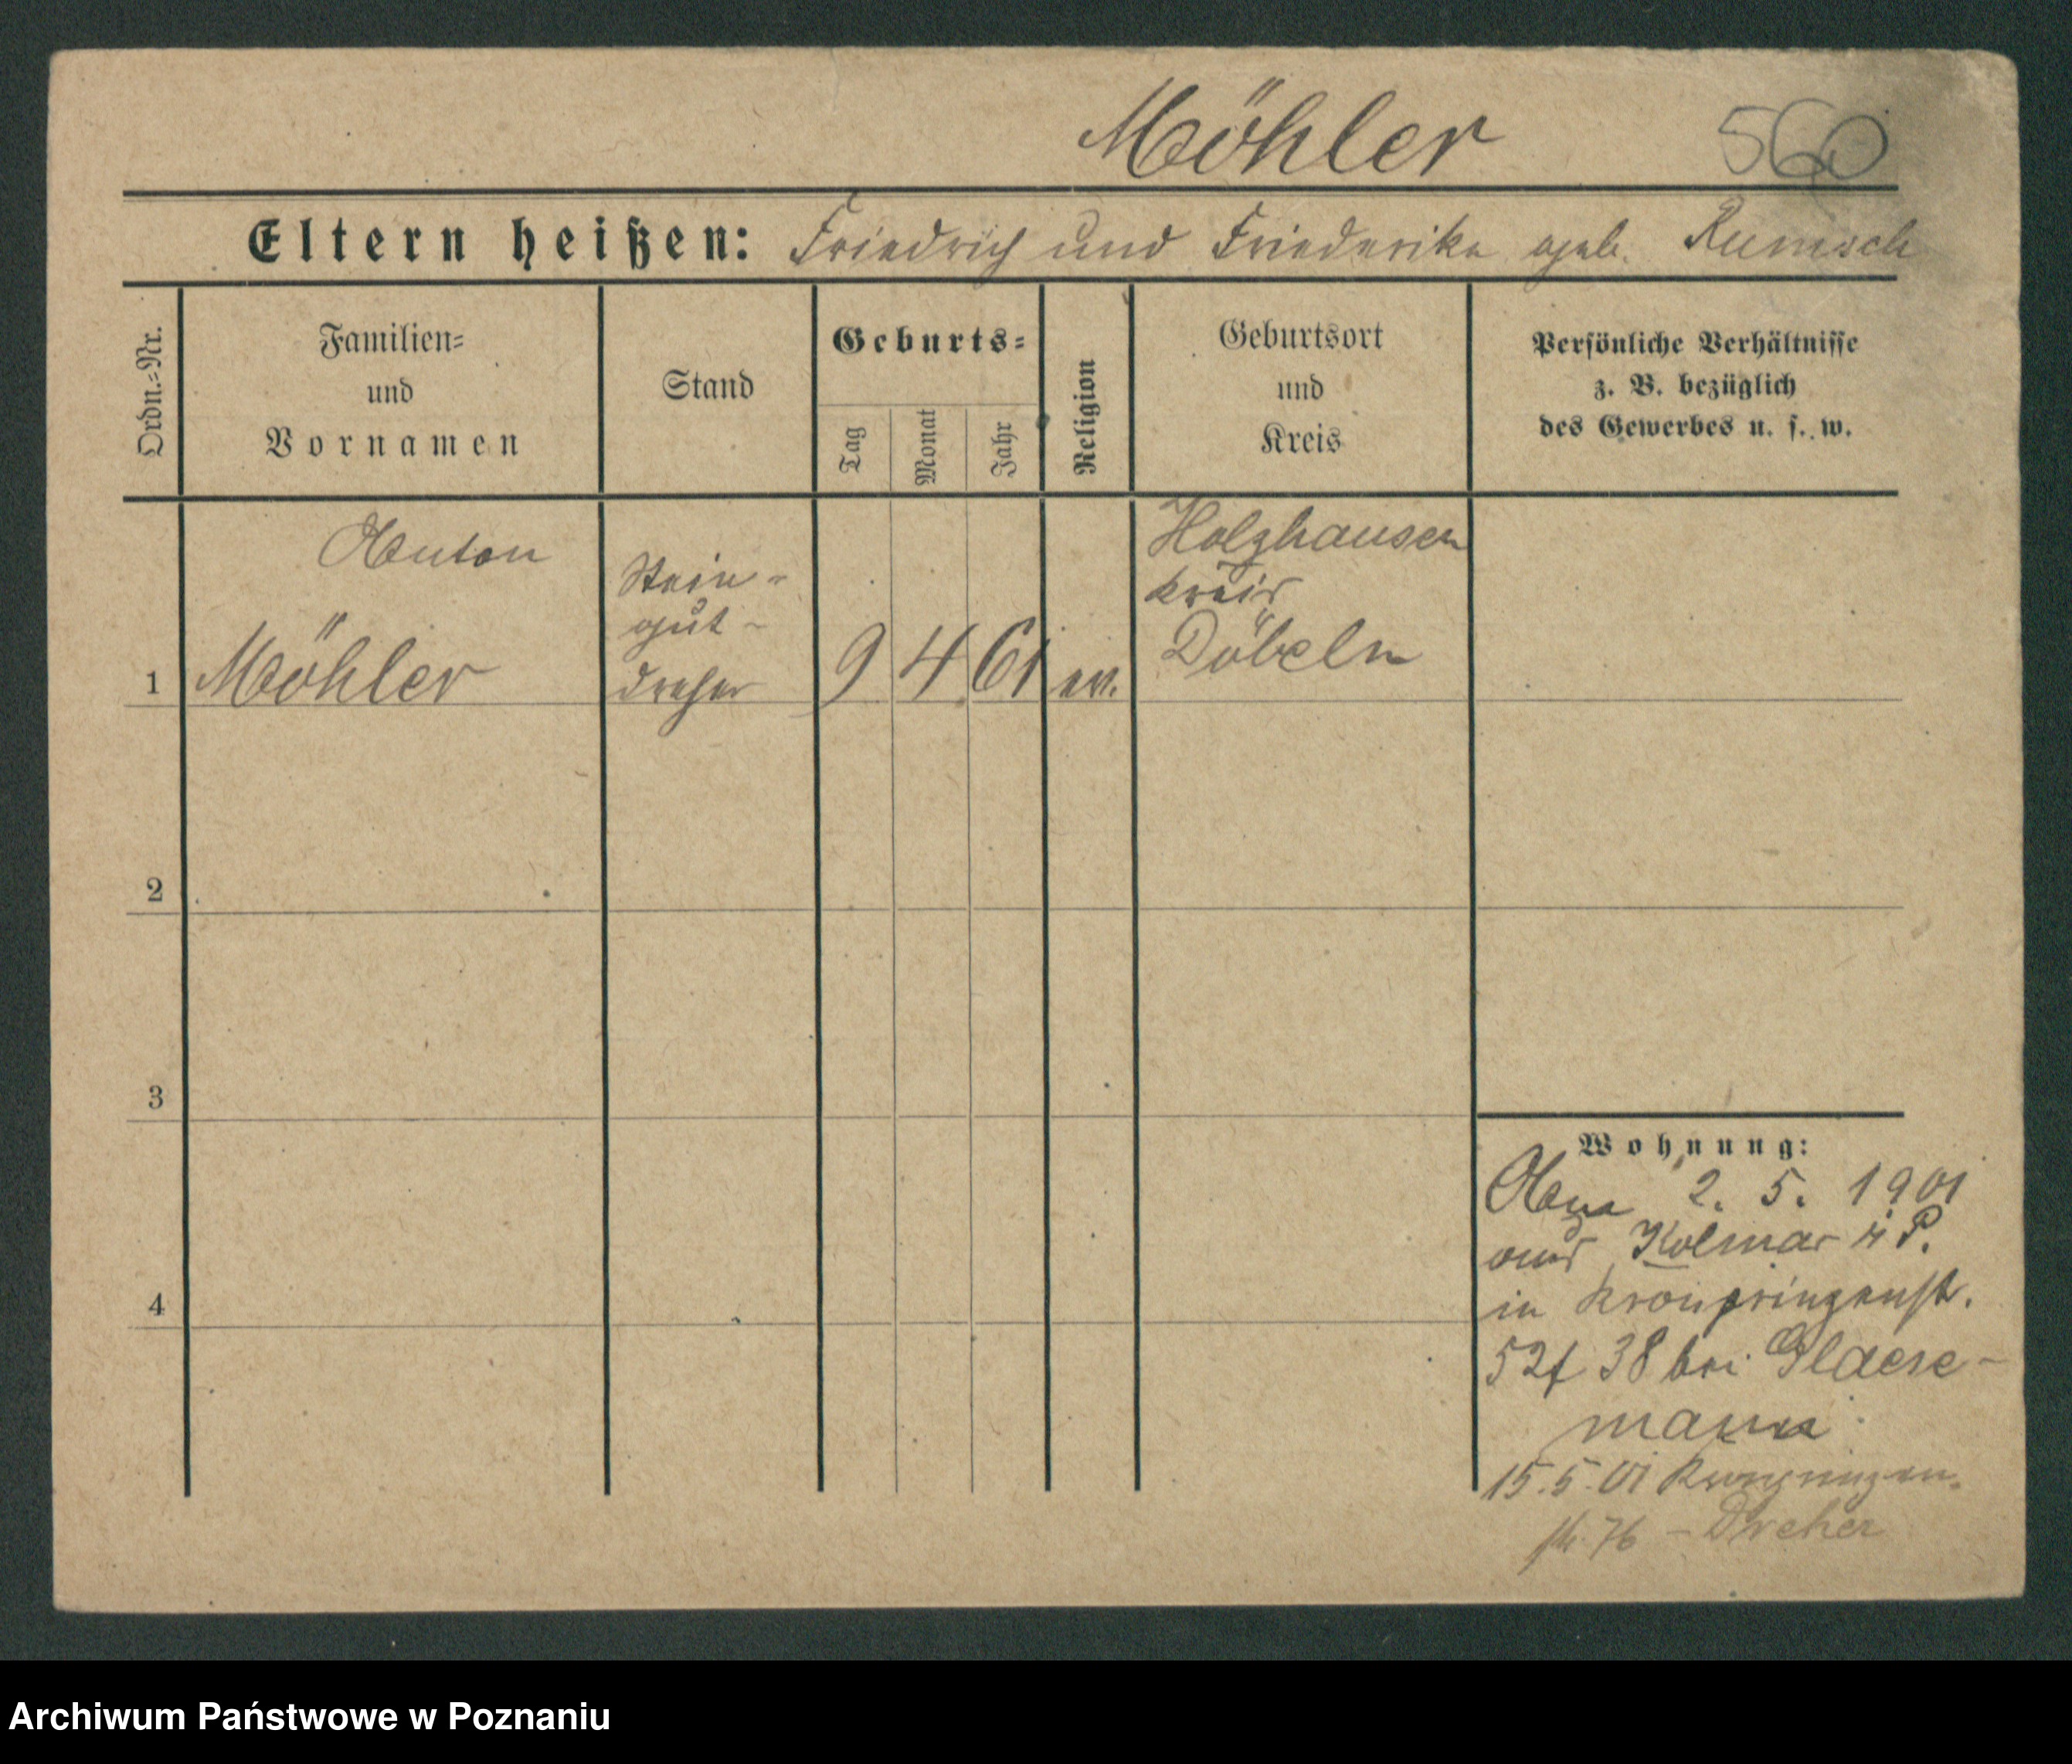 Möhler 560
Eltern heißen: Friedrich und Friederike geb. Rumisch
Ordn.=Nr.
Familien=
und
Vornamen
Stand
Geburts=
Tag
Monat
Jahr
Religion
Geburtsort
und
Kreis
Persönliche Verhältnisse
z. B. bezüglich
des Gewerbes u. s. w.
1
Anton
Möhler
Stein-
gut-
dreher
9 4 61 ev.
Holzhausen
Kreis
Döbeln
2
3
4
Wohnung:
2. 5. 1901
aus Kolmar i P.
in Kronprinzenstr.
52f 38 bei Glaese-
mann
15.5.01 Kronprinzen-
str. 76 - Dreher
Archiwum Państwowe w Poznaniu